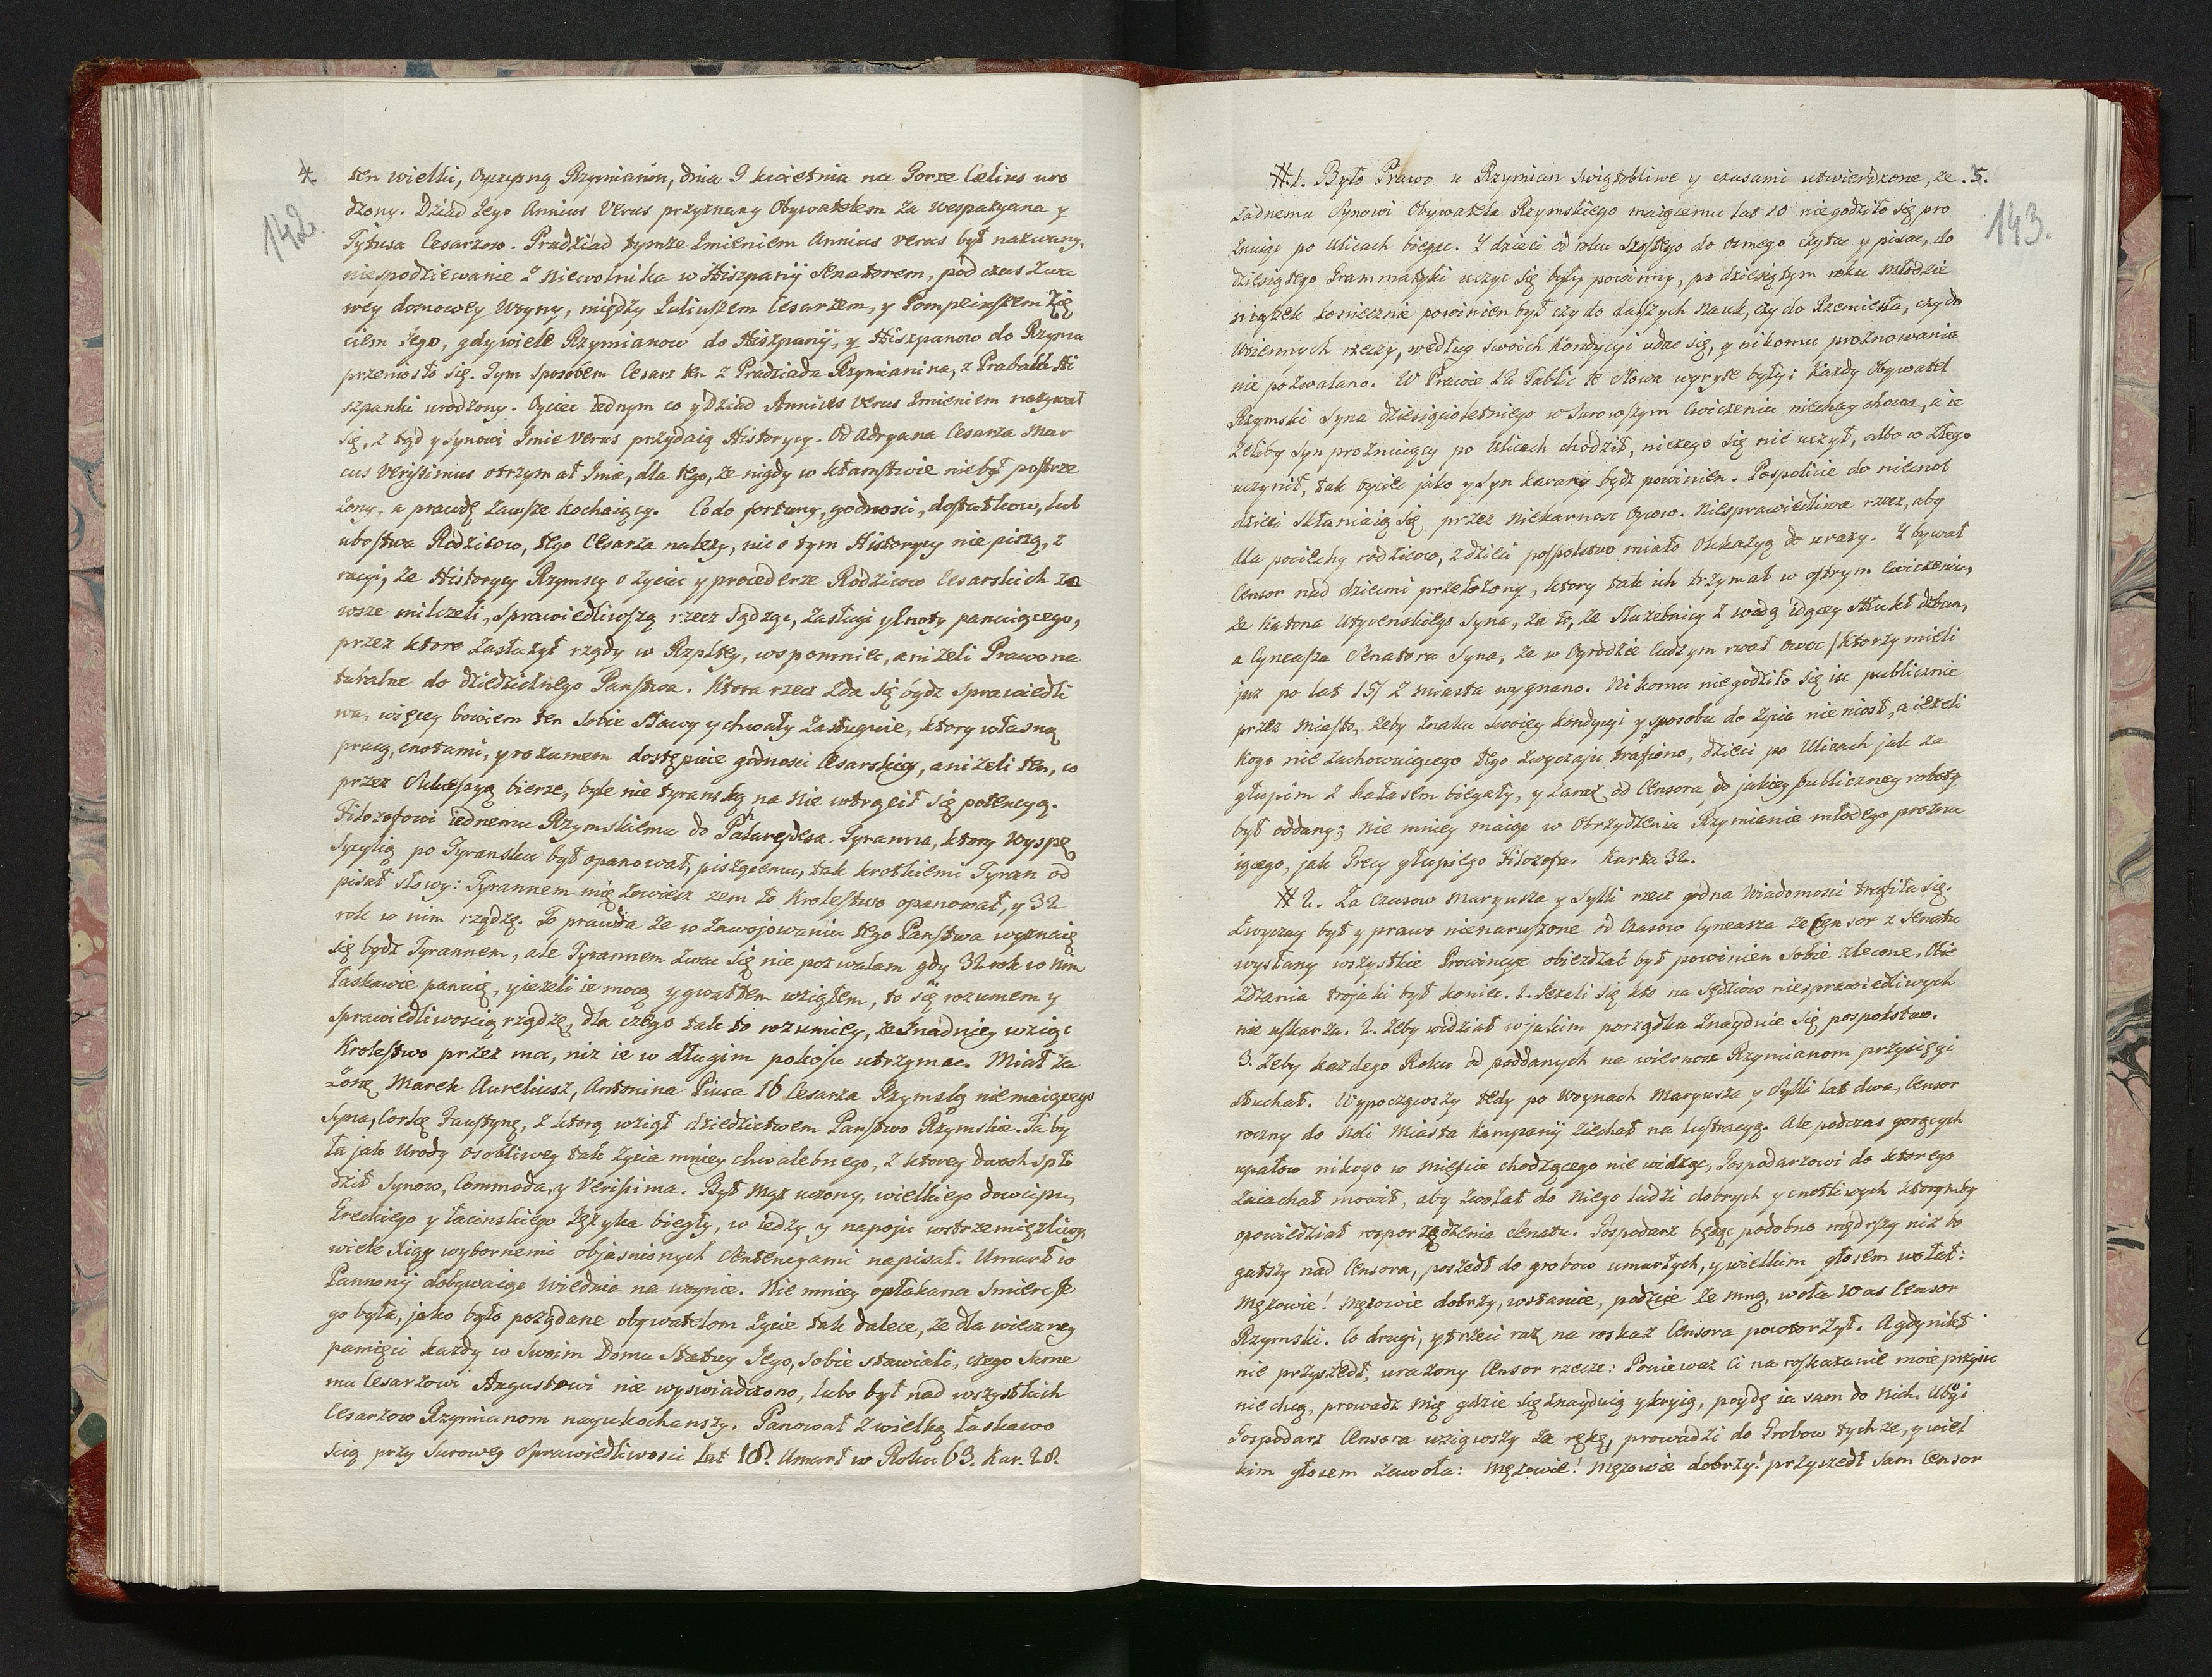 4.
142
ten wielki, Oyczyzną Rzymianin, dnia 9 kwietnia na Gorze Cælius uro
dzony. Dziad Jego Annius Verus przyznany Obywatelem za Wespazyana y
Tytusa Cesarzow. Pradziad tymze Imieniem Annius Verus był nazwany,
niespodziewanie z Niewolnika w Hiszpanij Senatorem, pod czas Zwa
wey domowey Woyny, między Juliuszem Cesarzem, y Pompeiuszem Zię
ciem Jego, gdy wiele Rzymianow do Hiszpanij, y Hiszpanow do Rzymu
przeniosło się. Tym sposobem Cesarz ten z Pradziada Rzymianina, z Prababki Hi
szpanki urodzony. Oyciec iednym co y Dziad Annius Verus Imieniem nazywał
się, z tąd y Synowi Imie Verus przydaią Historycy. Od Adryana Cesarza Mar
cus Verissimus otrzymał Imie, dla tego, ze nigdy w kłamstwie nie był postrze
zony, a prawdę zawsze kochaiący. Co do fortuny, godnosci, dostatkow, lub
ubostwa Rodzicow, tego Cesarza nalezy, nic o tym Historycy nie piszą, z
racyi, ze Historycy Rzymscy o zyciu y procederze Rodzicow Cesarskich za
wsze milczeli, sprawiedliwszą rzecz sądząc, zasługi y Cnoty panuiącego,
przez ktore zasłuzył rządy w Rzpltey, wspomniec, anizeli Prawo na
turalne do dziedzicznego Panstwa. Ktora rzecz zda się bydz sprawiedli
wa, więcey bowiem ten sobie Sławy y chwały zasługuie, ktory własną
pracą, cnotami, y rozumem dostępuie godnosci Cesarskiey, anizeli ten, co
przez Sukcessyą bierze, byle nie tyranską na Nie wtrącił się potencyą.
Filozofowi iednemu Rzymskiemu do Palarydesa Tyranna, ktory Wyspę
Sycylią po Tyransku był opanował, piszącemu, tak krotkiemi Tyran od
pisał słowy: Tyrannem mię zowiesz zem to Krolestwo opanował, y 32
rok w nim rządzę. To prawda ze w zawojowaniu tego Panstwa wyznaię
się bydz Tyrannem, ale Tyrannem zwac się nie pozwalam gdy 32 rok w Nim
łaskawie panuię, y iezeli ie mocą y gwałtem wziąłem, to się rozumem y
sprawiedliwoscią rządzę, dla czego tak to rozumiey, ze snadniey wziąc
Krolestwo przez moc, niz ie w długim pokoju utrzymac. Miał za
Zonę Marek Aureliusz, Antonina Piusa 16 Cesarza Rzymskg nie maiącego
Syna, Corkę Faustynę, z ktorą wziął dziedzictwem Panstwo Rzymskie. Ta by
ła jak Urody osobliwey tak zycia mniey chwalebnego, z ktorey dwoch spło
dził Synow, Commoda, y Verissima. Był Mąz uczony, wielkiego dowcipu,
Greckiego y Łacinskiego Języka biegły, w iedzy y napoju wstrzemięzliwy,
wiele Xiąg wybornemi objasnionych Sentencyami napisał. Umarł w
Pannonij dobywaiąc Wiednia na woynie. Nie mniey opłakana Smierc Je
go była, jako było poządane obywatelom zycie tak dalece, ze dla wieczney
pamięci kazdy w swoim Domu Statuy Jego, sobie stawiali, czego same
mu Cesarzowi Augustowi nie wyswiadczono, lubo był nad wszystkich
Cesarzow Rzymianom nayukochanszy. Panował z wielką łaskawo
scią przy surowey Sprawiedliwosci lat 18. Umarł w Roku 63. Kar. 28.
5.
143.
#.1. Było Prawo u Rzymian swiątobliwe y czasami utwierdzone, ze
zadnemu Synowi Obywatela Rzymskiego maiącemu lat 10 nie godziło się pro
znuiąc po Ulicach biegac. Y dzieci od roku szostego do osmego czytac y pisac, do
dziesiątego Grammatyki uczyc się były powinny, po dziesiątym roku Młodzie
niaszek koniecznie powinien był czy do dalszych Nauk, czy do Rzemiesła, czy do
Woiennych rzeczy, według swoich Kondycyi udac się, y nikomu proznowania
nie pozwalano. W Prawie 12 Tablic te słowa wyryte były: Kazdy Obywatel
Rzymski Syna dziesięcioletniego w surowszym cwiczeniu niechay chowa, a ie
zeliby Syn prozniuący po Ulicach chodził, niczego się nie uczył, albo co złego
uczynił, tak Oyciec jako y Syn karany bydz powinien. Pospolicie do niecnot
dzieci skłaniaią się przez niekarnosc Oycow. Niesprawiedliwa rzecz, aby
dla pociechy rodzicow, z dzieci pospolstwo miało Okkazyą do urazy. Y bywał
Censor nad dziecmi przełozony, ktory tak ich trzymał w ostrym cwiczeniu,
ze Katona Utycenskiego Syna, za to, ze Słuzebnicy z wodą idącey stłukł dzban,
a Cyneasza Senatora Syna, ze w Ogrodzie cudzym rwał owoc /ktorzy mieli
juz po lat 15/ z miasta wygnano. Nikomu nie godziło się isc publicznie
przez Miasto, zeby znaku swoiey kondycyi y sposobu do zycia nie niosł, a iezeli
kogo nie zachowuiącego tego zwyczaju trafiono, dzieci po Ulicach jak za
głupim z hałasem biegały, y zaraz od Censora do jakiey publiczney roboty
był oddany; Nie mniey maiąc w Obrzydzeniu Rzymianie młodego proznu
iącego, jak Grecy głupiego Filozofa. Karta 32.
# 2. Za Czasow Maryusza y Sylli rzecz godna Wiadomosci trafiła się.
Zwyczay był y prawo nienaruszone od Czasow Cyneasza ze Censor z Senatu
wysłany wszystkie Prowincye obiezdzac był powinien sobie zlecone. Obie
zdzania trojaki był koniec. 1. Jezeli się kto na Sędziow niesprawiedliwych
nie uskarza. 2. Zeby widział w jakim porządku znayduie się pospolstwo.
3. Zeby kazdego Roku od poddanych na wiernosc Rzymianom przysięgi
słuchał. Wypocząwszy tedy po Woynach Maryusza y Sylli lat dwa, Censor
roczny do Noli Miasta Kampanij ziechał na lustracyą. Ale podczas gorących
upałow nikogo w Miescie chodzącego nie widząc, Gospodarzowi do ktorego
zaiachał mowił, aby zwołał do niego ludzi dobrych y cnotliwych ktorymby
opowiedział rosporządzenia Senatu. Gospodarz będąc podobno mędrszy niz bo
gatszy nad Censora, poszedł do grobow umarłych, y wielkim głosem wołał:
Męzowie! Męzowie dobrzy, wstancie, podzcie ze mną, woła was Censor
Rzymski. Co drugi, y trzeci raz na roskaz Censora powtorzył. A gdy nikt
nie przyszedł, urazony Censor rzecze: Poniewaz ci na roskazanie moie przysc
nie chcą, prowadz mię gdzie się znayduią y kryią, poydę ia sam do Nich. Ubogi
Gospodarz Censora wziąwszy za rękę, prowadzi do Grobow tychze, y wiel
kim głosem zawoła: Męzowie! Męzowie dobrzy! przyszedł sam Censor